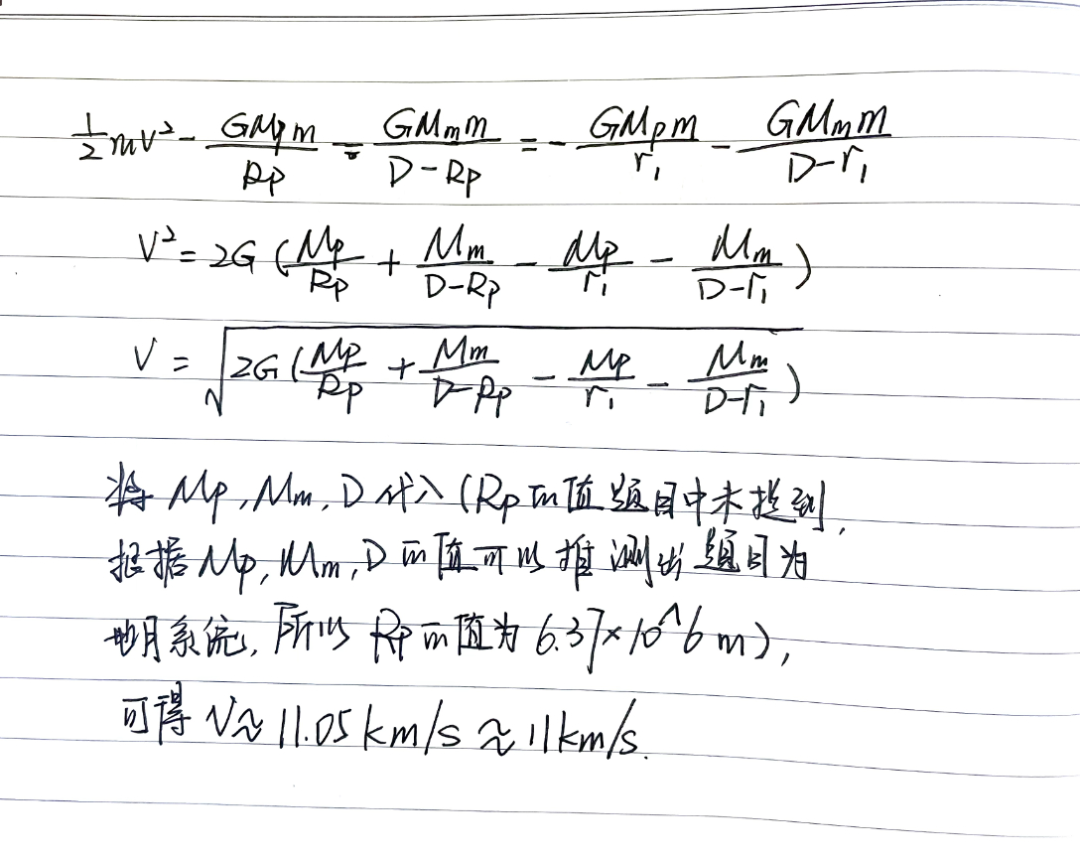 ½mv² - GMpm/Rp - GMmm/(D-Rp) = - GMpm/r₁ - GMmm/(D-r₁)
V² = 2G (Mp/Rp + Mm/(D-Rp) - Mp/r₁ - Mm/(D-r₁))
V = √(2G (Mp/Rp + Mm/(D-Rp) - Mp/r₁ - Mm/(D-r₁)))
将 Mp, Mm, D 代入 (Rp 的值题目中未提到,
根据 Mp, Mm, D 的值可以推测出题目为
地月系统, 所以 Rp 的值为 6.37×10^6 m),
可得 V≈ 11.05 km/s ≈ 11km/s.